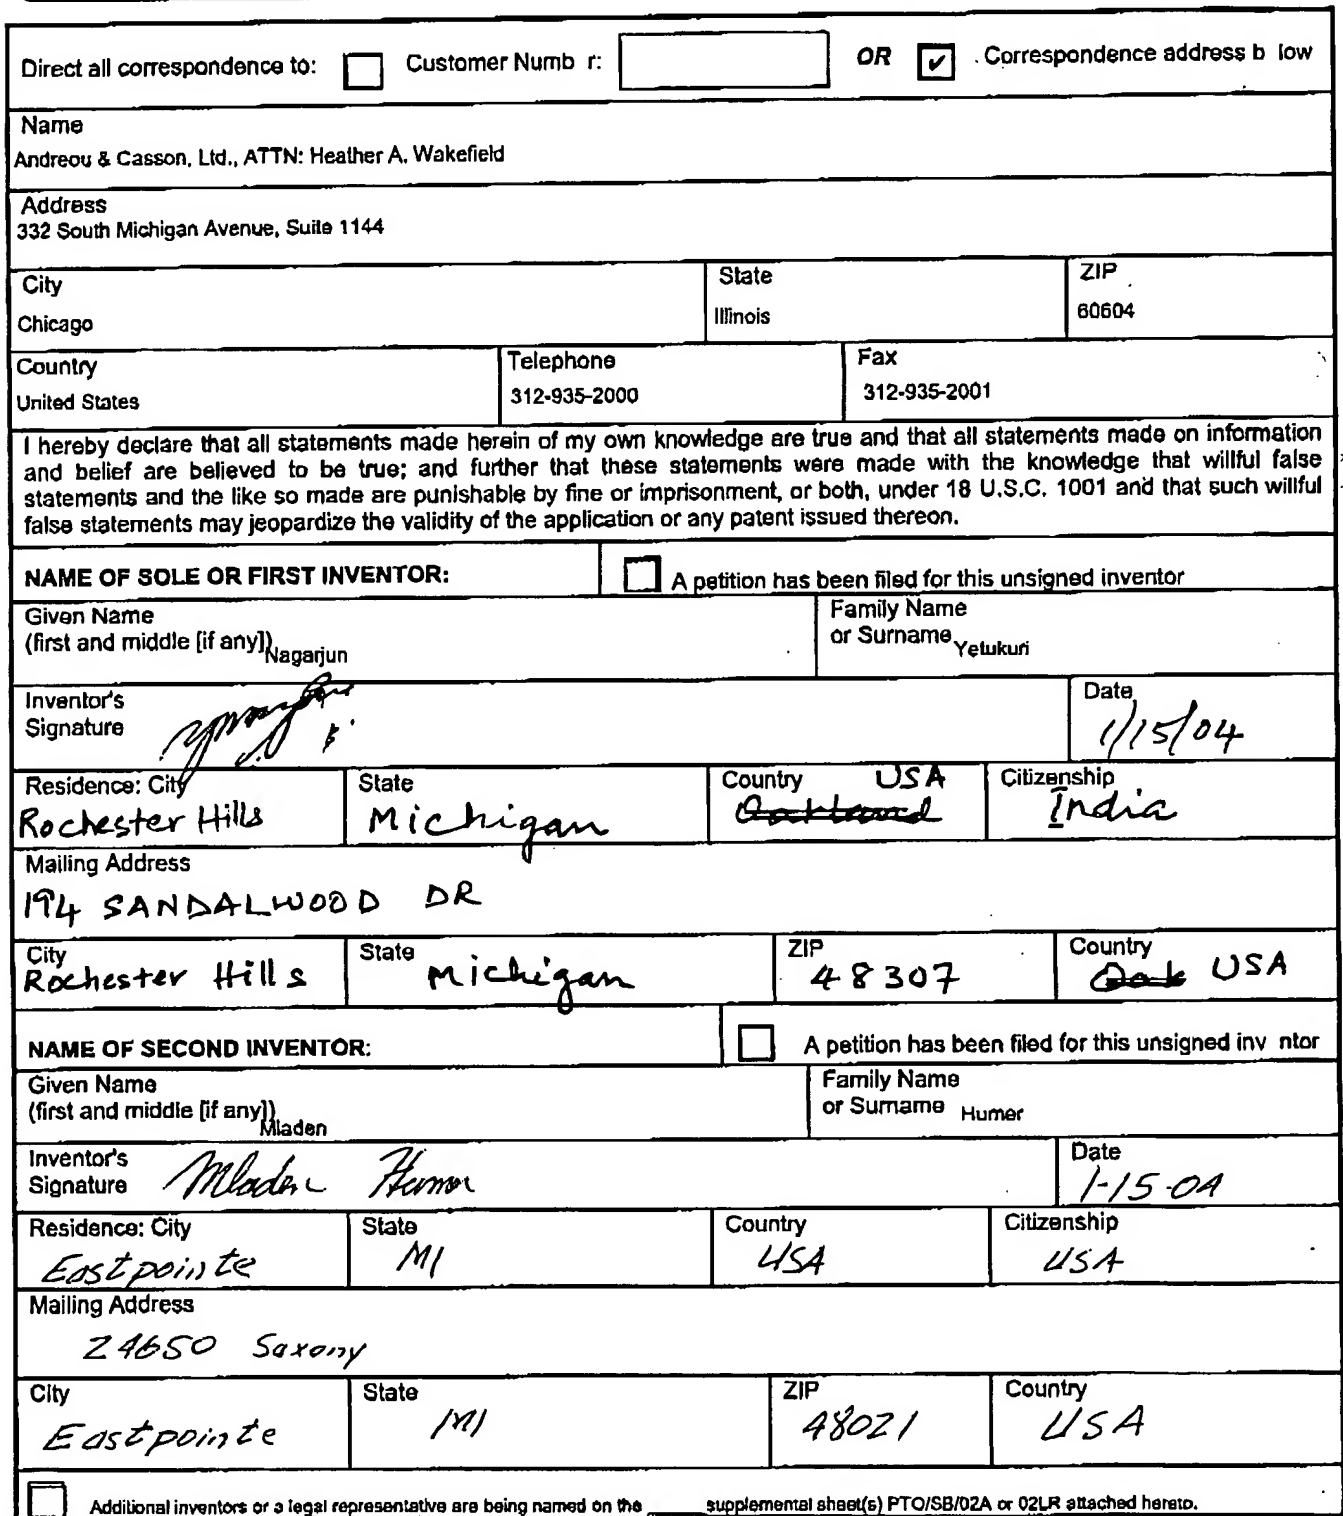 Direct all correspondence to: Customer Numb r: OR ✔ Correspondence address b low
Name
Andreou & Casson, Ltd., ATTN: Heather A. Wakefield
Address
332 South Michigan Avenue, Suite 1144
City State ZIP
Chicago Illinois 60604
Country Telephone Fax
United States 312-935-2000 312-935-2001
I hereby declare that all statements made herein of my own knowledge are true and that all statements made on information
and belief are believed to be true; and further that these statements were made with the knowledge that willful false
statements and the like so made are punishable by fine or imprisonment, or both, under 18 U.S.C. 1001 and that such willful
false statements may jeopardize the validity of the application or any patent issued thereon.
NAME OF SOLE OR FIRST INVENTOR: A petition has been filed for this unsigned inventor
Given Name Family Name
(first and middle [if any]) Nagarjun or Surname Yetukuri
Inventor's Date
Signature 1/15/04
Residence: City State Country USA Citizenship
Rochester Hills Michigan Oakland India
Mailing Address
194 SANDALWOOD DR
City State ZIP Country
Rochester Hills Michigan 48307 Oak USA
NAME OF SECOND INVENTOR: A petition has been filed for this unsigned inv ntor
Given Name Family Name
(first and middle [if any]) Mladen or Surname Humer
Inventor's Date
Signature Mladen Humer 1-15-04
Residence: City State Country Citizenship
Eastpointe MI USA USA
Mailing Address
24650 Saxony
City State ZIP Country
Eastpointe MI 48021 USA
Additional inventors or a legal representative are being named on the ____ supplemental sheet(s) PTO/SB/02A or 02LR attached hereto.